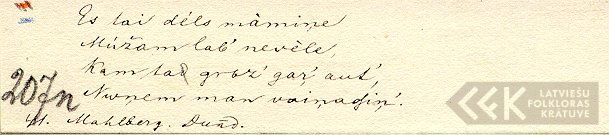 Es tai dēls māmiņe
Mūžam lab' nevēle,
Kam tad groz' gaŗ' aut',
Nuņem man vainadziņ'.
207n
H. Mahlberg. Dund.
LFK LATVIEŠU
FOLKLORAS
KRATUVE